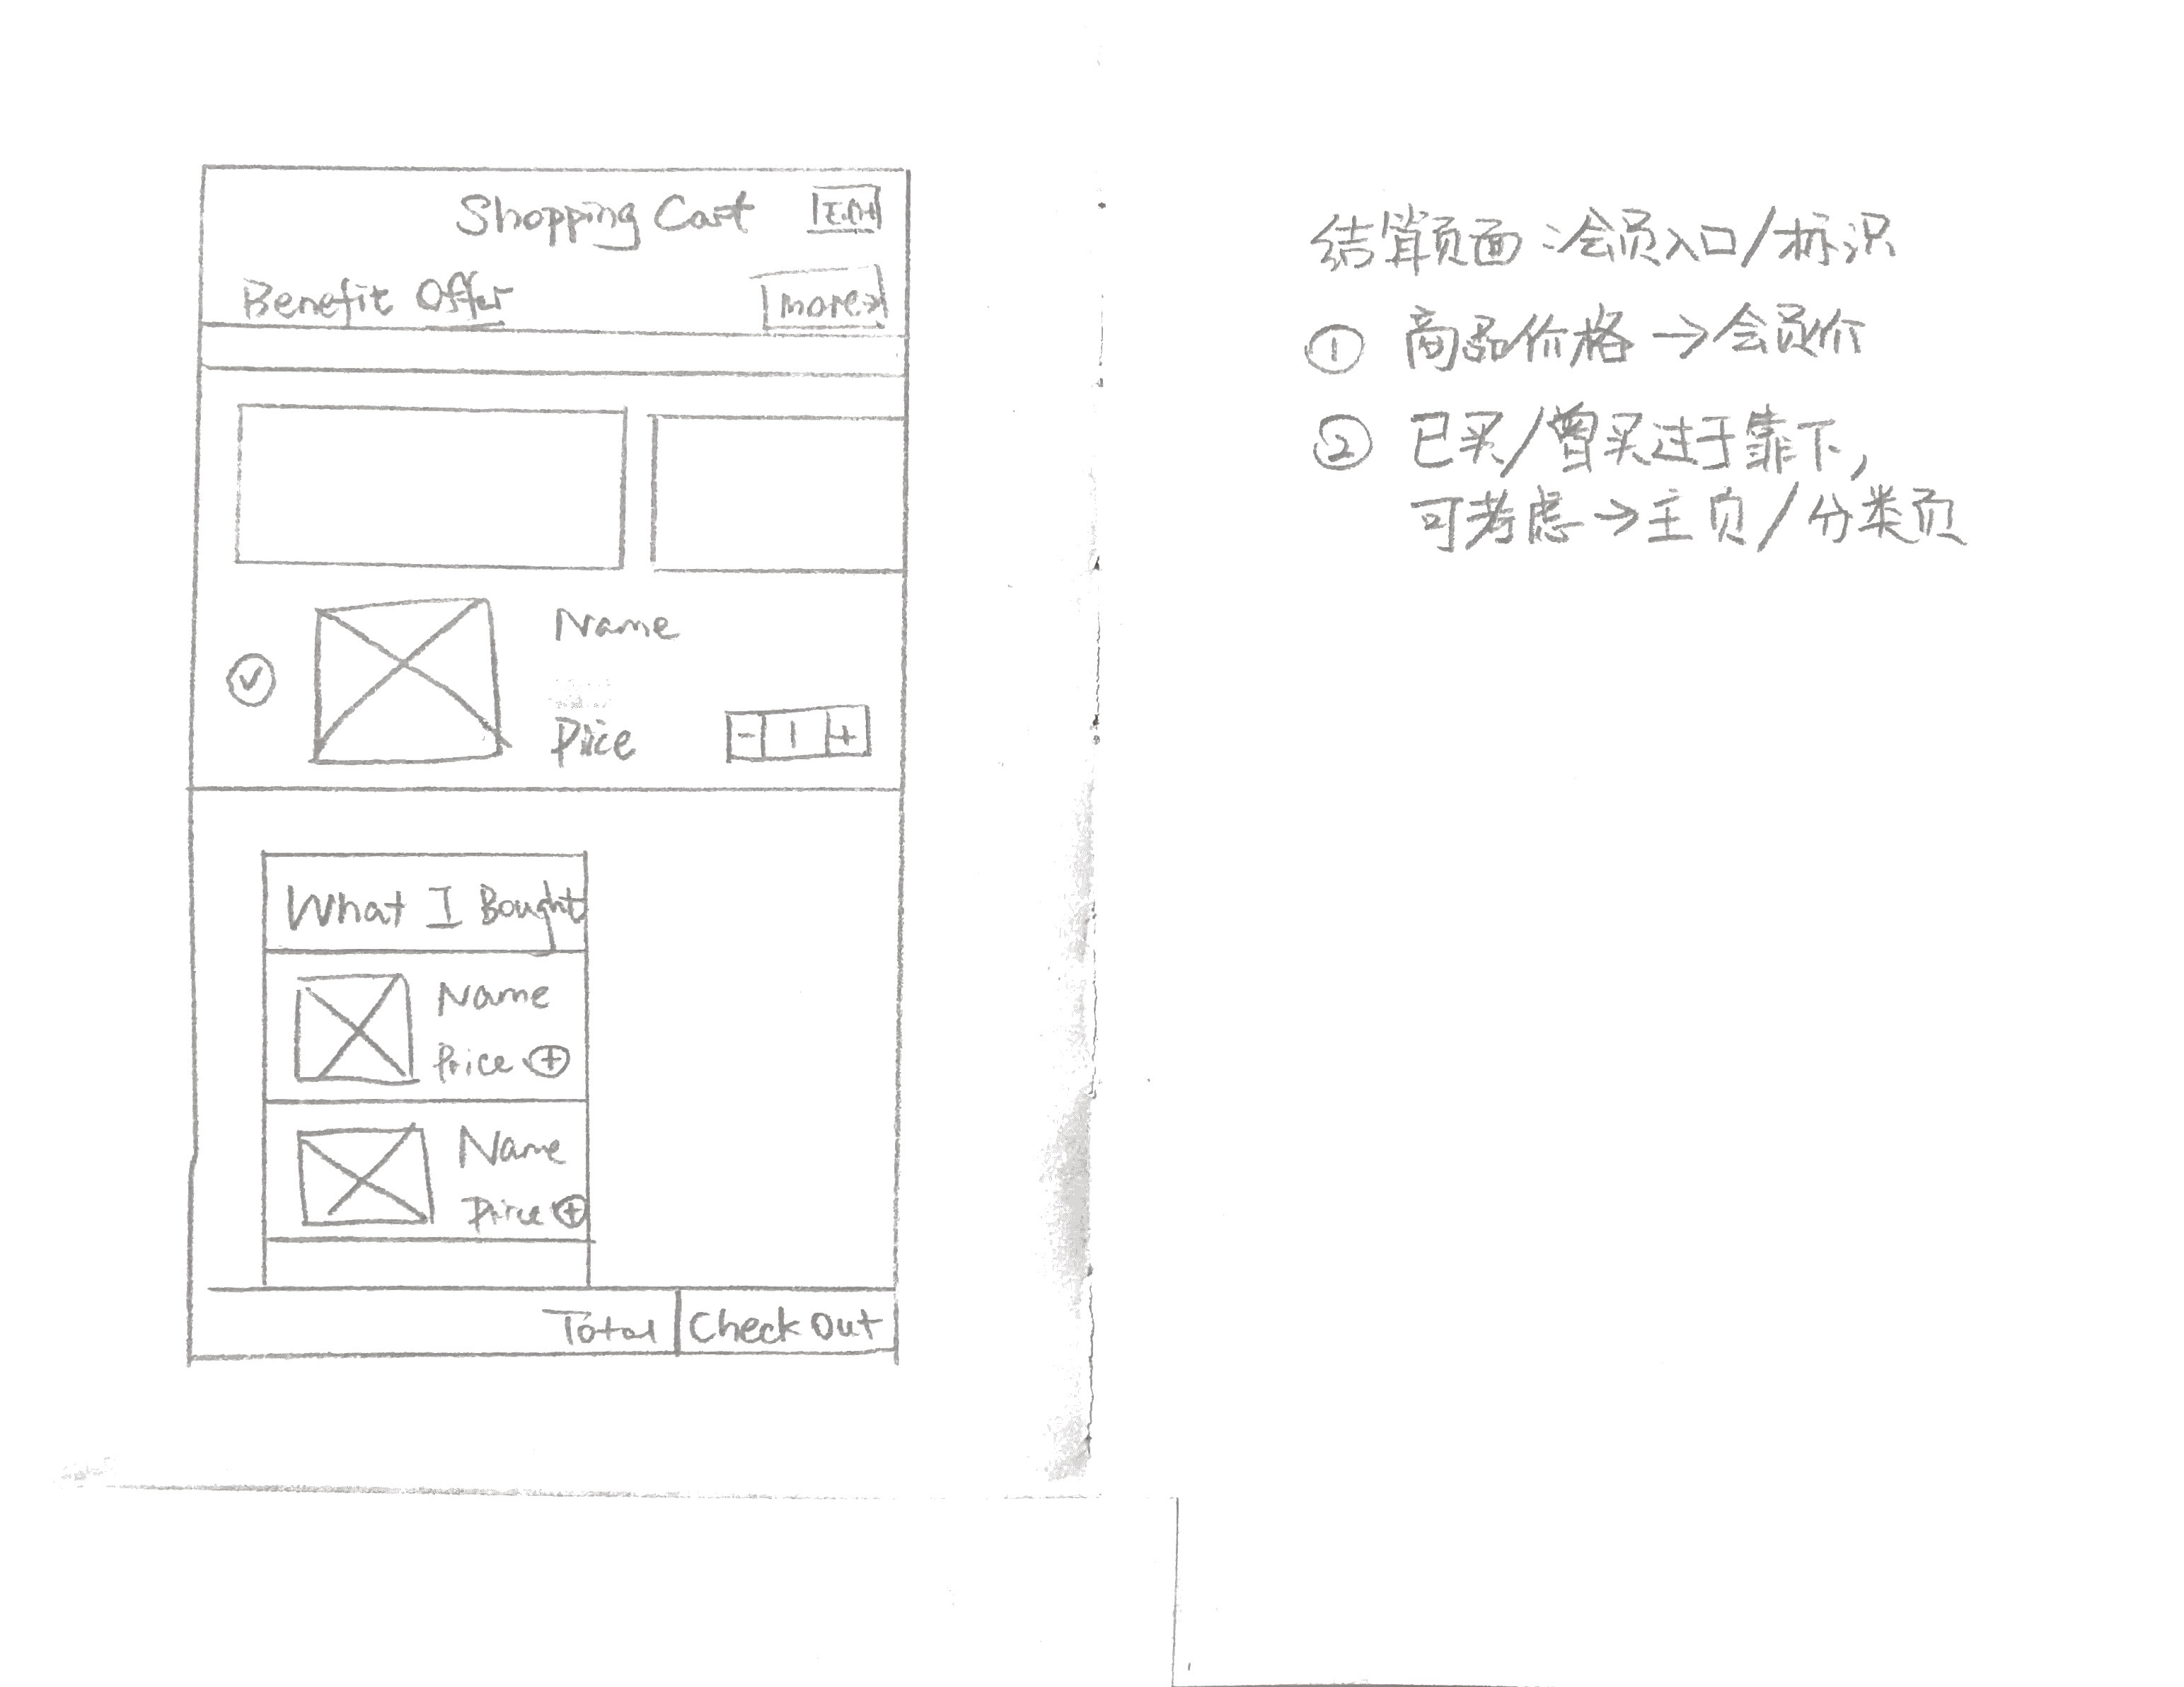 Shopping Cart Edit
Benefit Offer more>
Name
Price - 1 +
What I Bought
Name
Price +
Name
Price +
Total Check Out
结算页面：会员入口/标识
① 商品价格→会员价
② 已买/曾买过于靠下，
可考虑→主页/分类页